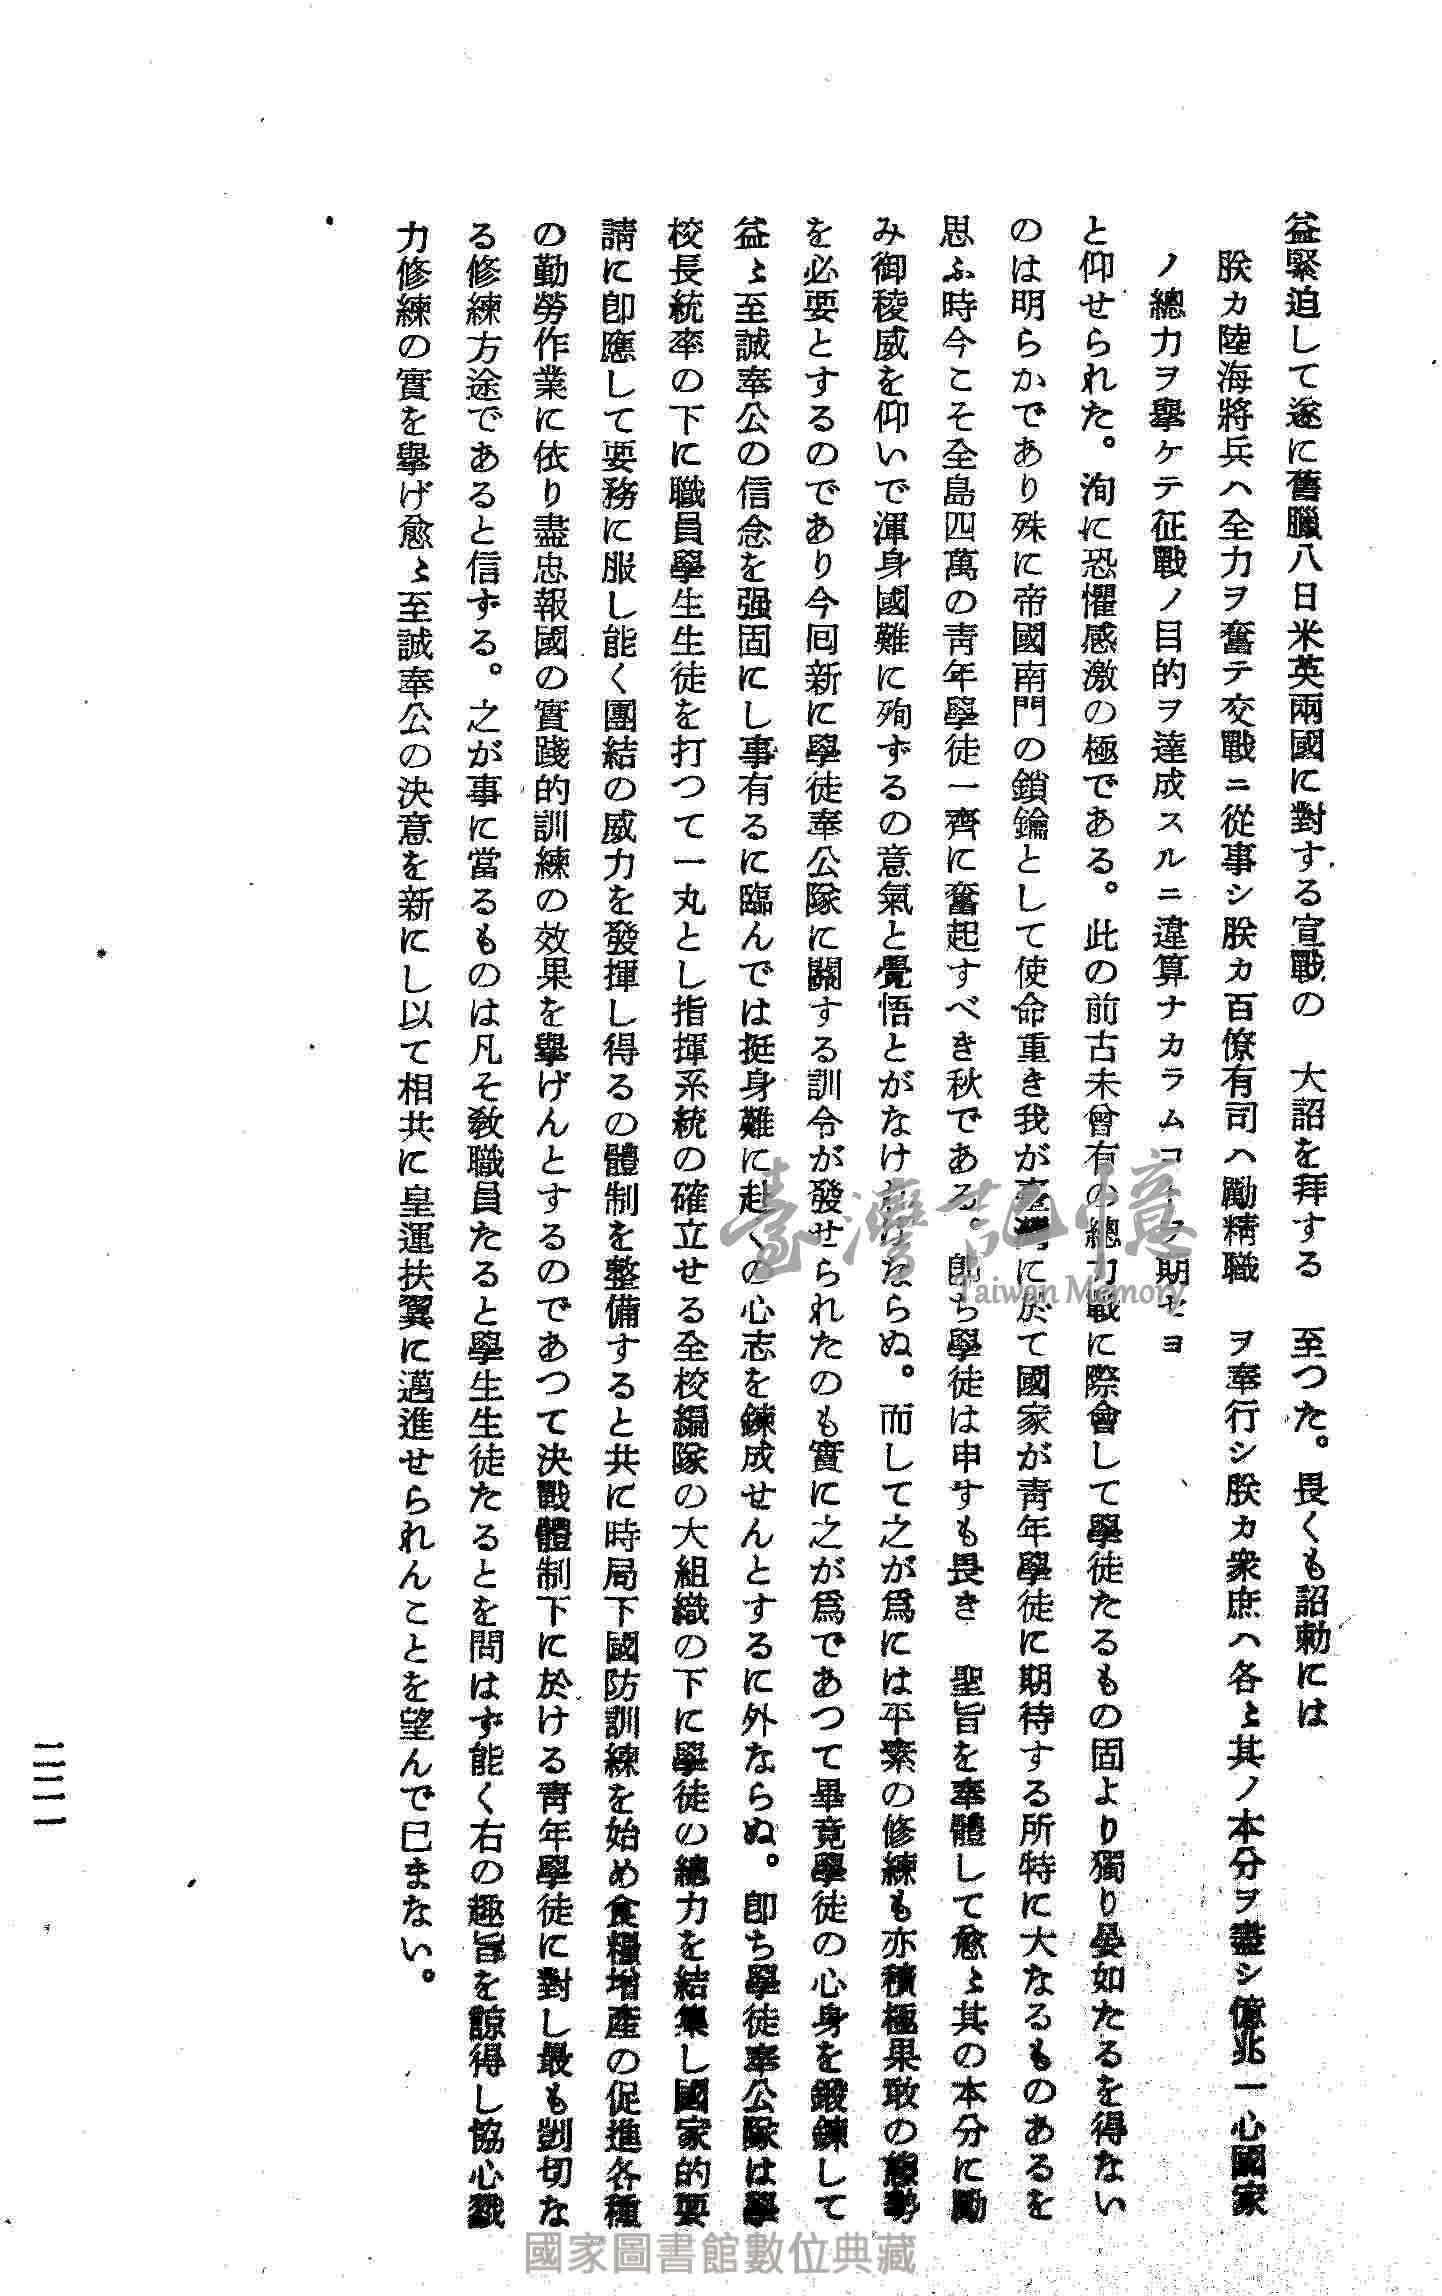 益緊迫して遂に舊臘八日米英兩國に對する宣戰の　大詔を拜する　至つた。畏くも詔勅には
朕カ陸海將兵ハ全力ヲ奮テ交戰ニ從事シ朕カ百僚有司ハ勵精職　ヲ奉行シ朕カ衆庶ハ各〻其ノ本分ヲ盡シ億兆一心國家
ノ總力ヲ擧ケテ征戰ノ目的ヲ達成スルニ違算ナカラムコトヲ期セヨ
と仰せられた。洵に恐懼感激の極である。此の前古未曾有の總力戰に際會して學徒たるもの固より獨り晏如たるを得ない
のは明らかであり殊に帝國南門の鎖鑰として使命重き我が臺灣に於て國家が靑年學徒に期待する所特に大なるものあるを
思ふ時今こそ全島四萬の靑年學徒一齊に奮起すべき秋である。卽ち學徒は申すも畏き　聖旨を奉體して愈〻其の本分に勵
み御稜威を仰いで渾身國難に殉ずるの意氣と覺悟とがなければならぬ。而して之が爲には平素の修練も亦積極果敢の態勢
を必要とするのであり今囘新に學徒奉公隊に關する訓令が發せられたのも實に之が爲であつて畢竟學徒の心身を鍛鍊して
益〻至誠奉公の信念を强固にし事有るに臨んでは挺身難に赴くの心志を鍊成せんとするに外ならぬ。卽ち學徒奉公隊は學
校長統率の下に職員學生生徒を打つて一丸とし指揮系統の確立せる全校編隊の大組織の下に學徒の總力を結集し國家的要
請に卽應して要務に服し能く團結の威力を發揮し得るの體制を整備すると共に時局下國防訓練を始め食糧增產の促進各種
の勤勞作業に依り盡忠報國の實踐的訓練の效果を擧げんとするのであつて決戰體制下に於ける靑年學徒に對し最も剴切な
る修練方途であると信ずる。之が事に當るものは凡そ敎職員たると學生生徒たるとを問はず能く右の趣旨を諒得し協心戮
力修練の實を擧げ愈〻至誠奉公の決意を新にし以て相共に皇運扶翼に邁進せられんことを望んで已まない。
二二一
臺灣記憶
Taiwan Memory
國家圖書館數位典藏